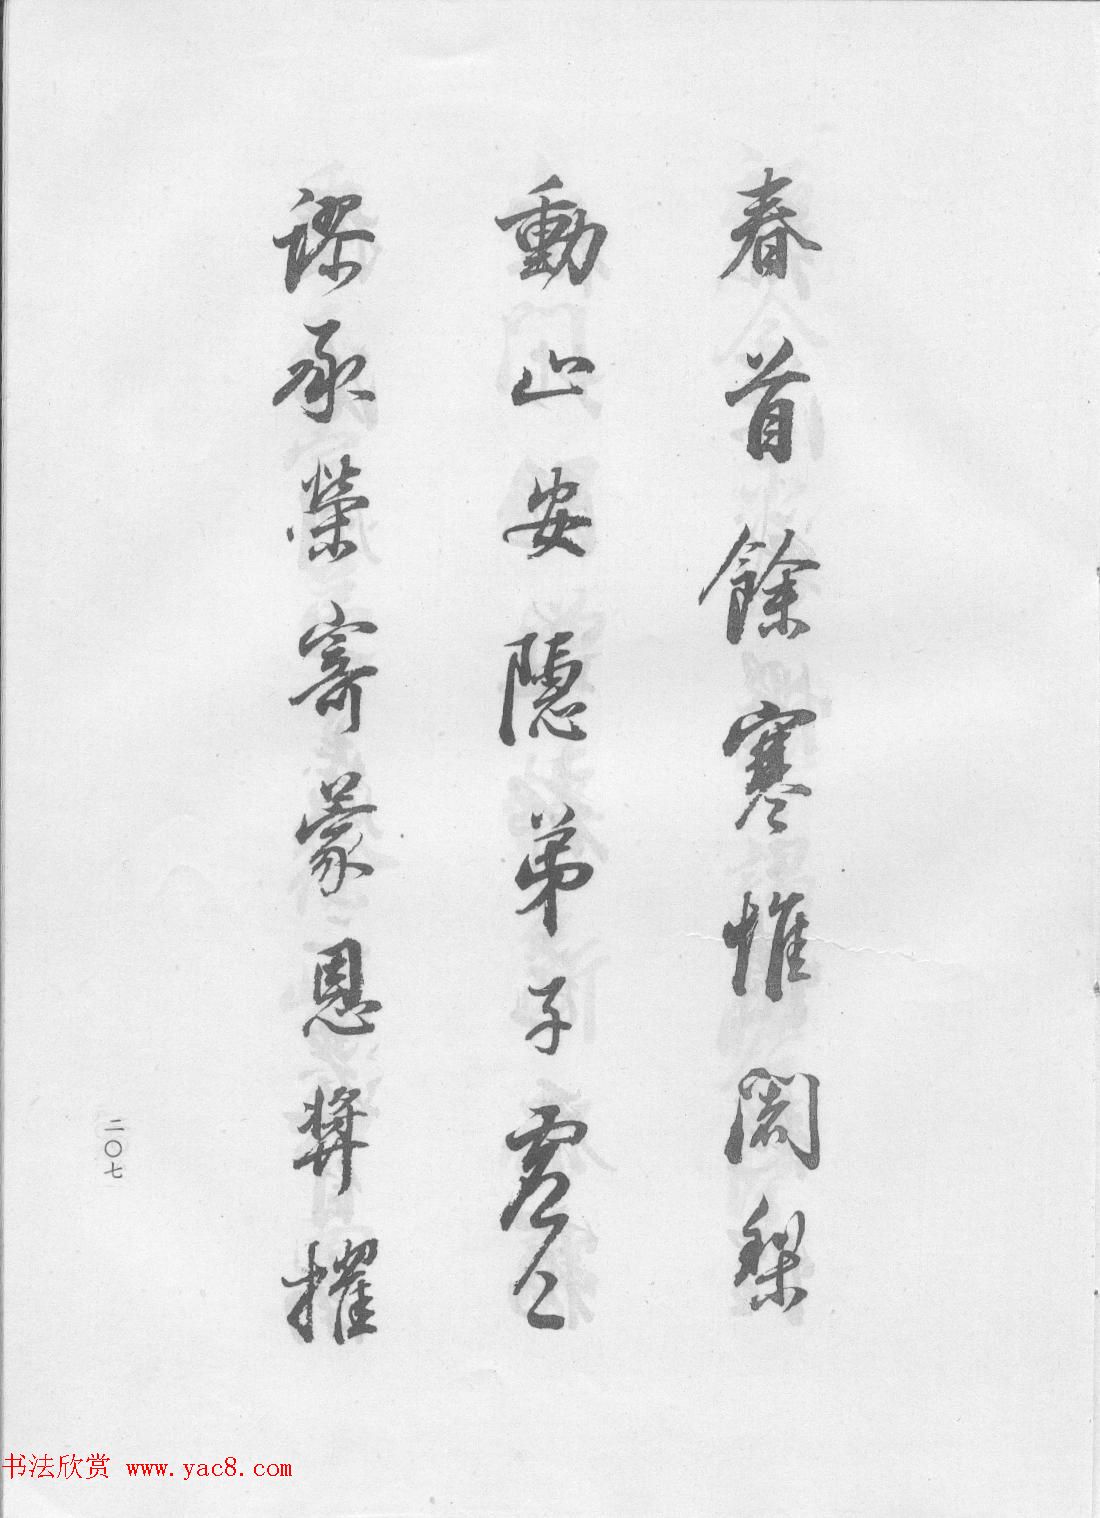 春首餘寒惟闍梨
動止安隱弟子虛乏
謬承榮寄蒙恩獎擢
二〇七
书法欣赏 www.yac8.com